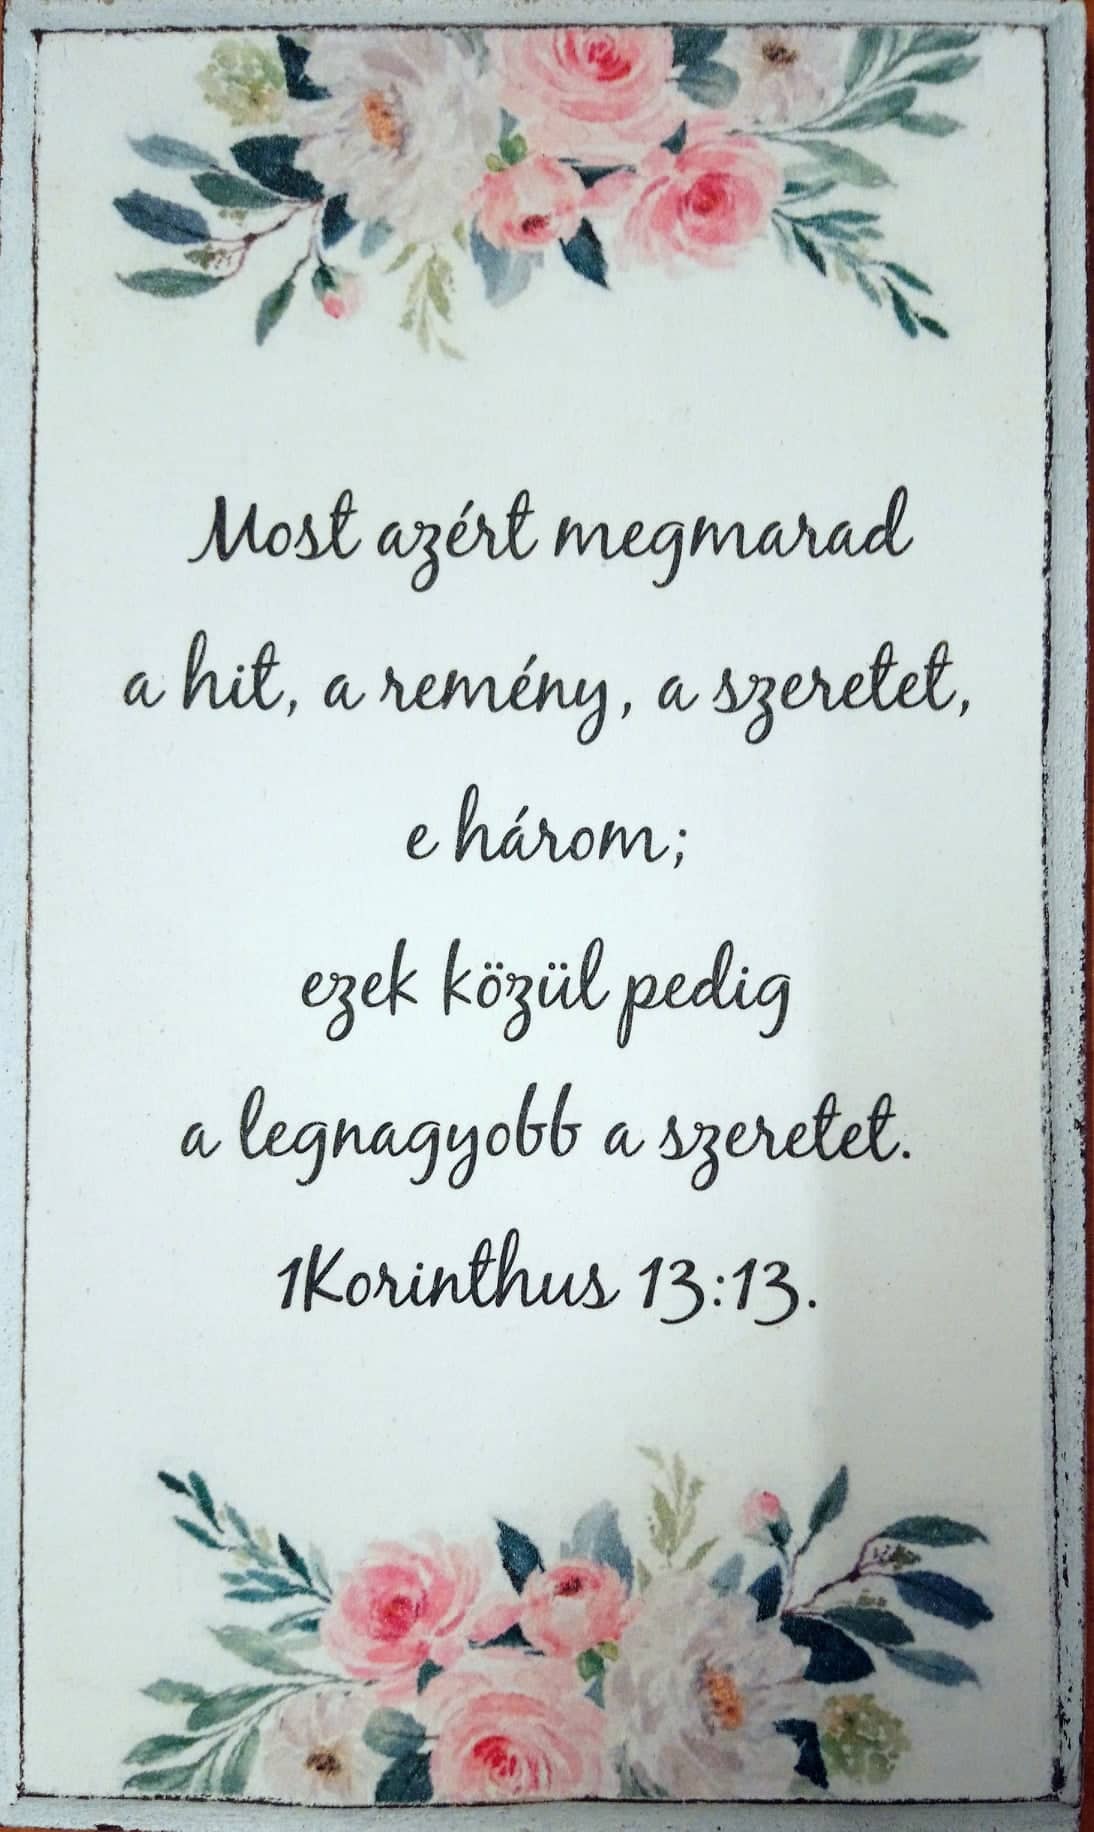 Most azért megmarad
a hit, a remény, a szeretet,
e három;
ezek közül pedig
a legnagyobb a szeretet.
1Korinthus 13:13.